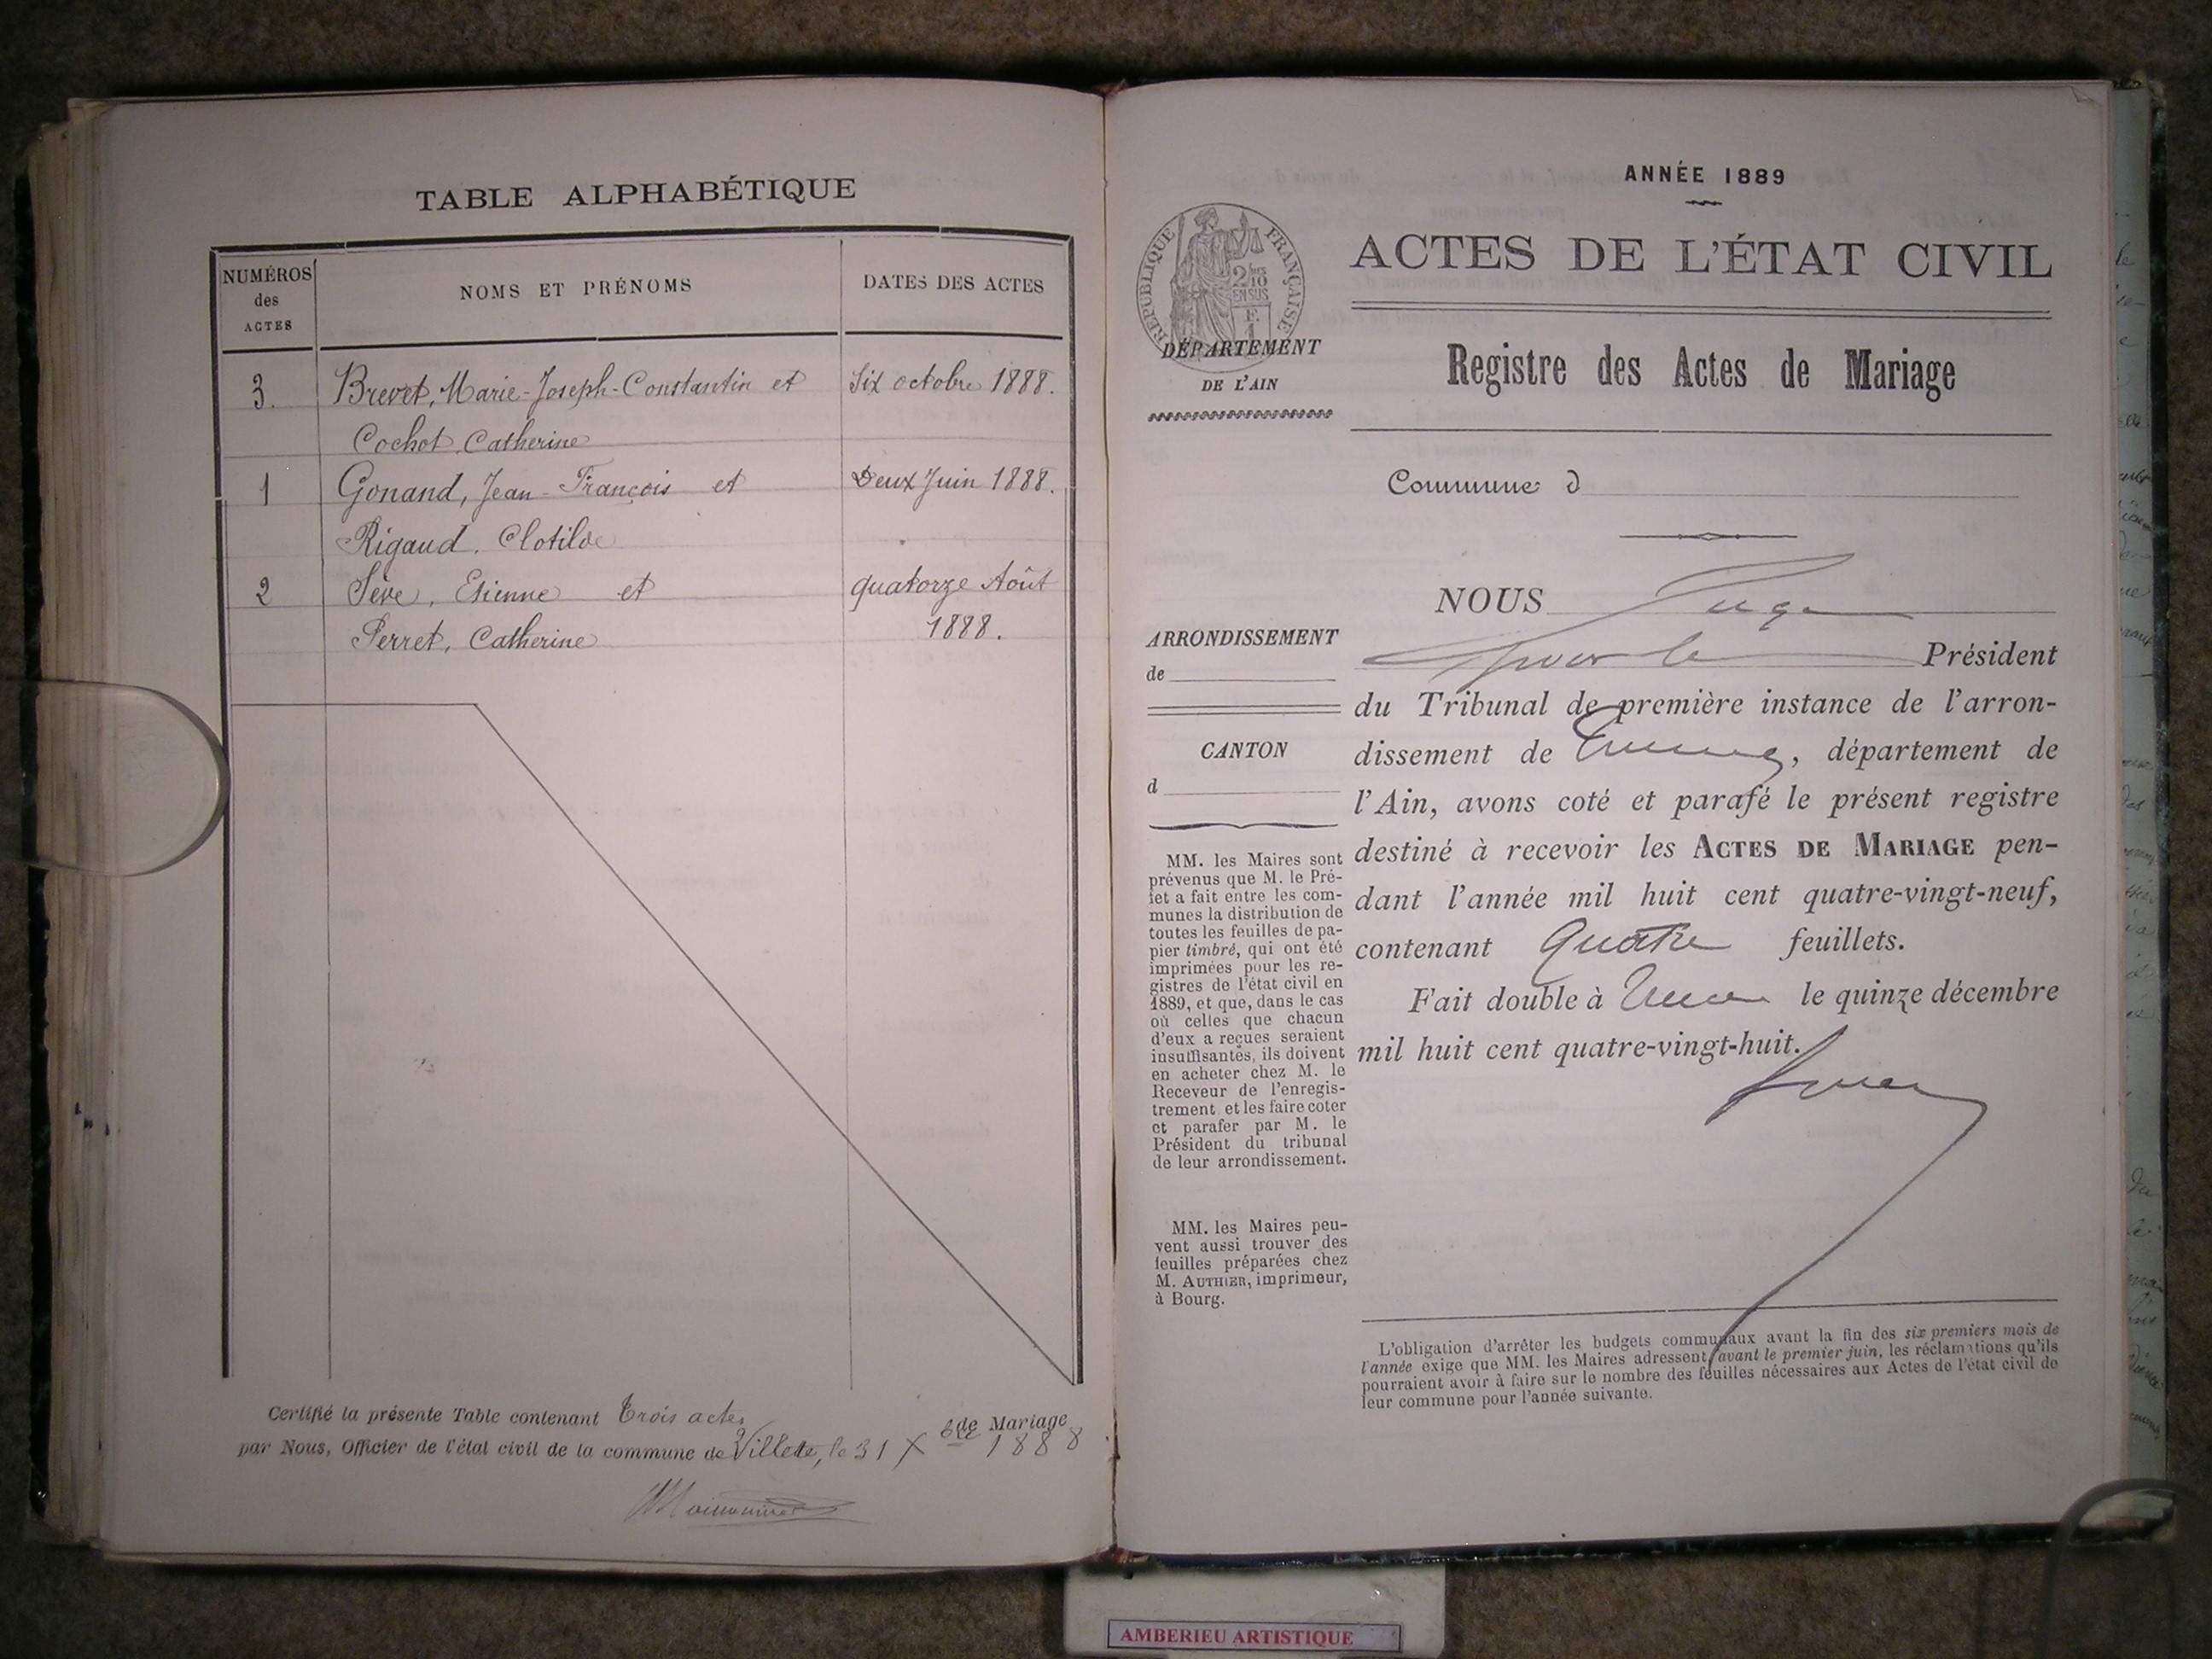 TABLE ALPHABÉTIQUE
NUMÉROS
des
ACTES
NOMS ET PRÉNOMS
DATES DES ACTES
3. Brevet, Marie-Joseph-Constantin et Six octobre 1888.
Cochot, Catherine
1 Gonand, Jean-François et Deux Juin 1888.
Rigaud, Clotilde
2 Sève, Etienne et quatorze Août
Perret, Catherine 1888.
Certifié la présente Table contenant trois actes de Mariage
par Nous, Officier de l'état civil de la commune de Villette, le 31 Xbre 1888
ANNÉE 1889
RÉPUBLIQUE FRANÇAISE
2/10
EN SUS
F.
1
ACTES DE L'ÉTAT CIVIL
DÉPARTEMENT
DE L'AIN
Registre des Actes de Mariage
Commune d
NOUS Juge
pour le Président
du Tribunal de première instance de l'arron-
dissement de , département de
l'Ain, avons coté et parafé le présent registre
destiné à recevoir les ACTES DE MARIAGE pen-
dant l'année mil huit cent quatre-vingt-neuf,
contenant Quatre feuillets.
Fait double à le quinze décembre
mil huit cent quatre-vingt-huit.
ARRONDISSEMENT
de
CANTON
d
MM. les Maires sont
prévenus que M. le Pré-
fet a fait entre les com-
munes la distribution de
toutes les feuilles de pa-
pier timbré, qui ont été
imprimées pour les re-
gistres de l'état civil en
1889, et que, dans le cas
où celles que chacun
d'eux a reçues seraient
insuffisantes, ils doivent
en acheter chez M. le
Receveur de l'enregis-
trement et les faire coter
et parafer par M. le
Président du tribunal
de leur arrondissement.
MM. les Maires peu-
vent aussi trouver des
feuilles préparées chez
M. AUTHIER, imprimeur,
à Bourg.
L'obligation d'arrêter les budgets communaux avant la fin des six premiers mois de
l'année exige que MM. les Maires adressent, avant le premier juin, les réclamations qu'ils
pourraient avoir à faire sur le nombre des feuilles nécessaires aux Actes de l'état civil de
leur commune pour l'année suivante.
AMBERIEU ARTISTIQUE